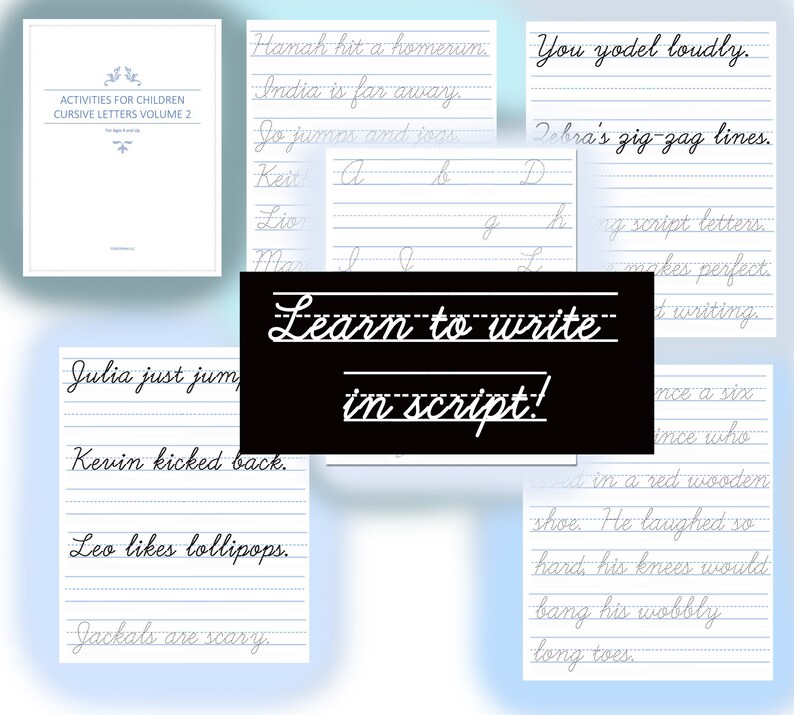 ACTIVITIES FOR CHILDREN
CURSIVE LETTERS VOLUME 2
For Ages 4 and Up
Hanah hit a homerun.
India is far away.
Jo jumps and jogs.
Keith
Lion
You yodel loudly.
Zebra's zig-zag lines.
script letters.
makes perfect.
writing.
A b D
g h
I J L
Learn to write
in script!
Julia just jump
Kevin kicked back.
Leo likes lollipops.
Jackals are scary.
a six
who
in a red wooden
shoe. He laughed so
hard, his knees would
bang his wobbly
long toes.